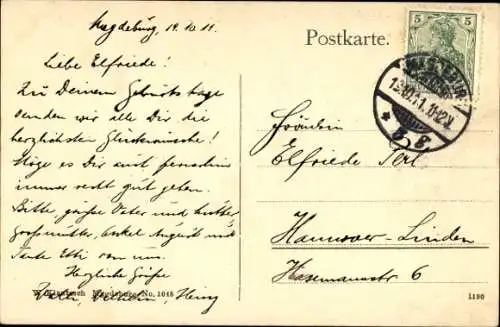 Magdeburg, 14.10.11.
Liebe Elfriede!
Zu Deinem Geburtstage
senden wir alle Dir die
herzlichsten Glückwünsche!
Möge es Dir auch fernerhin
immer recht gut gehen.
Bitte, grüße Vater und Mutter
Großmutter, Onkel August und
Tante Etti von uns.
Herzliche Grüße
Heinz
Magdeburg. No. 1048
Postkarte.
5 5
MAGDEBURG
Fräulein
Elfriede
Hannover-Linden
Hasemannstr 6
1190